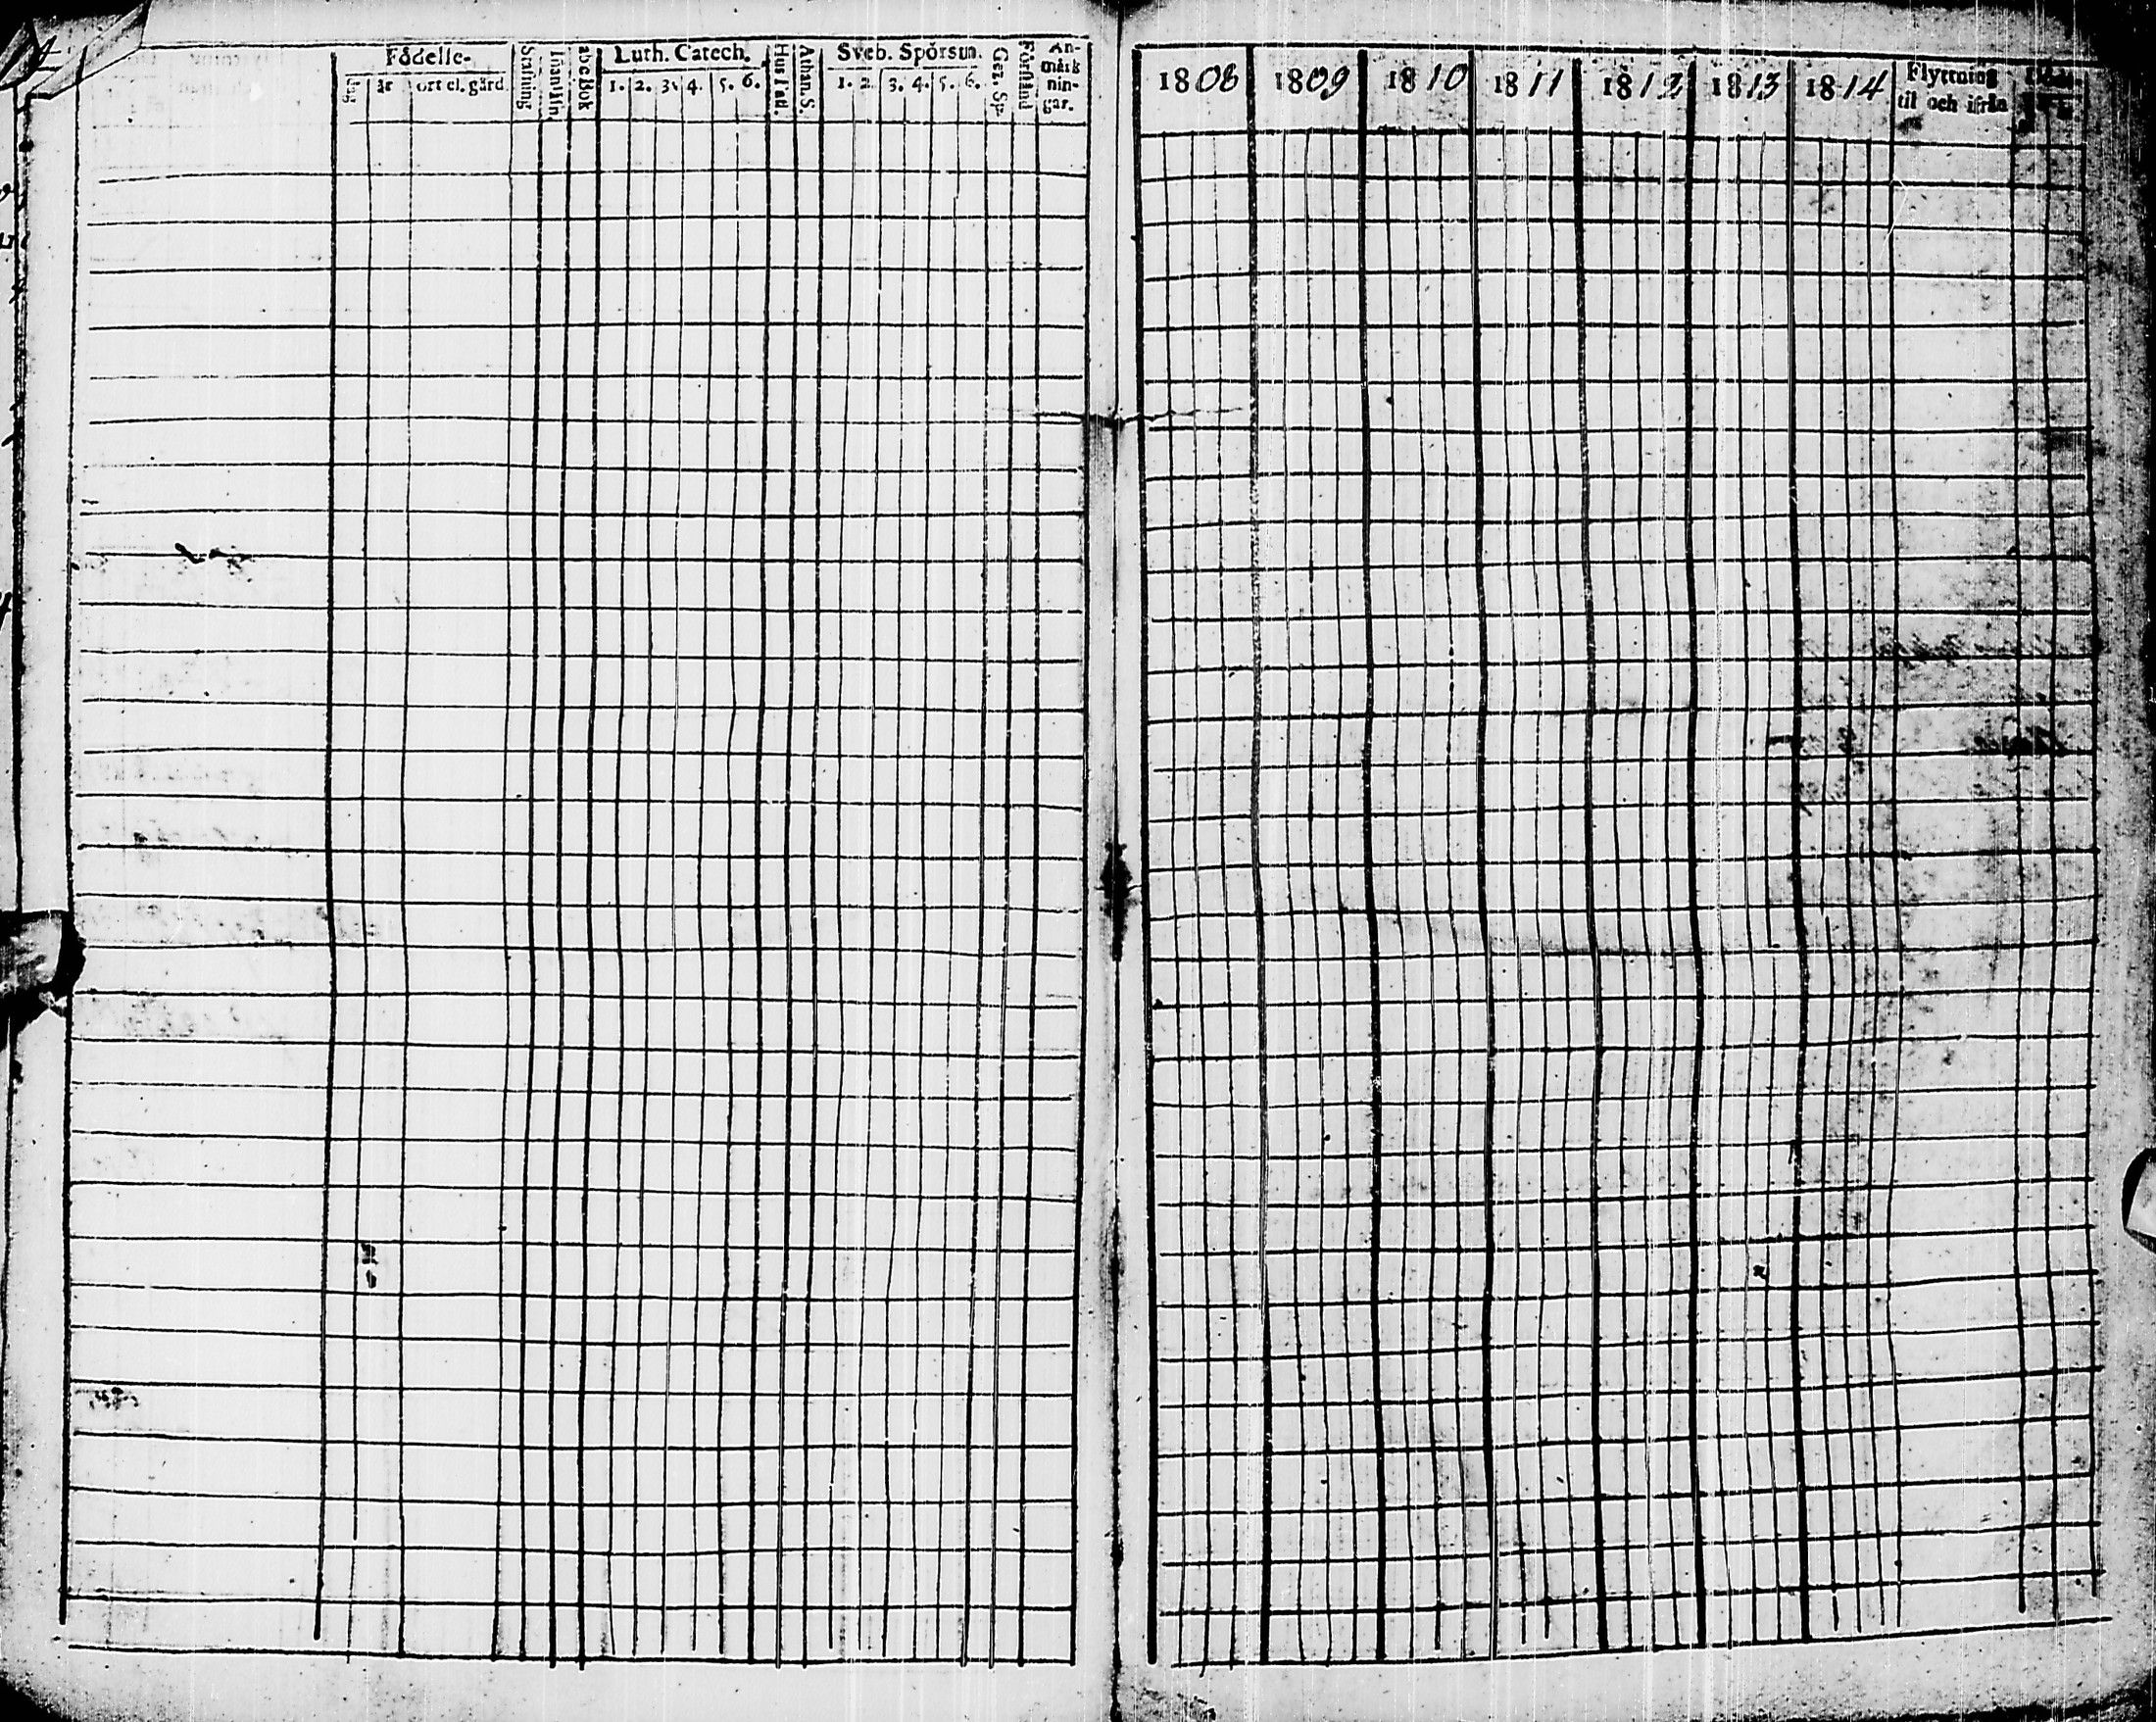 Födelse- Stafning Luth. Catech. Hus Tafl. Athan. S. Sveb. Spörsm. Gez. Sp. Förstånd An-
märk
dag år ort el. gård 1. 2. 3. 4. 5. 6. 1. 2. 3. 4. 5. 6. nin-
gar.
1808 1809 1810 1811 1812 1813 1814 Flyttning
til och ifrån